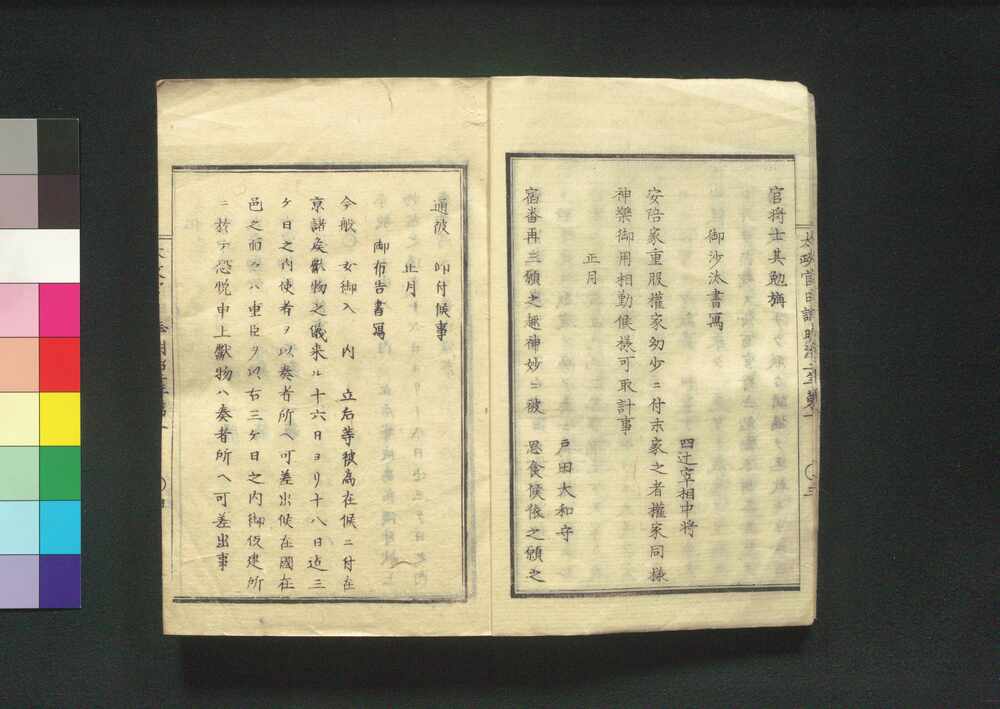 官将士其勉旃
御沙汰書寫
四辻宰相中将
安陪家重服權家幼少ニ付末家之者權家同樣
神樂御用相勤候樣可取計事
正月
戸田大和守
宿畨再三願之趣神妙ニ被 思食候依之願之
通被 仰付候事
正月
御布告書寫
今般 女御入 内 立后等被爲在候ニ付在
京諸矦獻物之儀来ル十六日ヨリ十八日迠三
ケ日之内使者ヲ以奏者所ヘ可差出候在國在
邑之面々ハ重臣ヲ以右三ケ日之内御假建所
ニ於テ恐悦申上獻物ハ奏者所ヘ可差出事